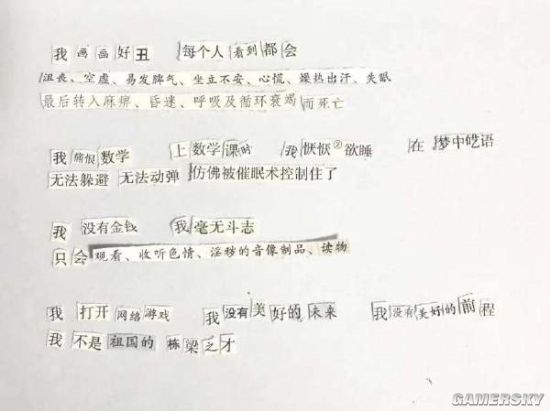 我画画好丑 每个人看到都会
沮丧、空虚、易发脾气、坐立不安、心慌、燥热出汗、失眠
最后转入麻痹、昏迷、呼吸及循环衰竭而死亡
我痛恨数学 上数学课时 我恹恹②欲睡 在梦中呓语
无法躲避 无法动弹 仿佛被催眠术控制住了
我没有金钱 我毫无斗志
只会观看、收听色情、淫秽的音像制品、读物
我打开网络游戏 我没有美好的未来 我没有美好的前程
我不是祖国的栋梁之才
GAMERSKY